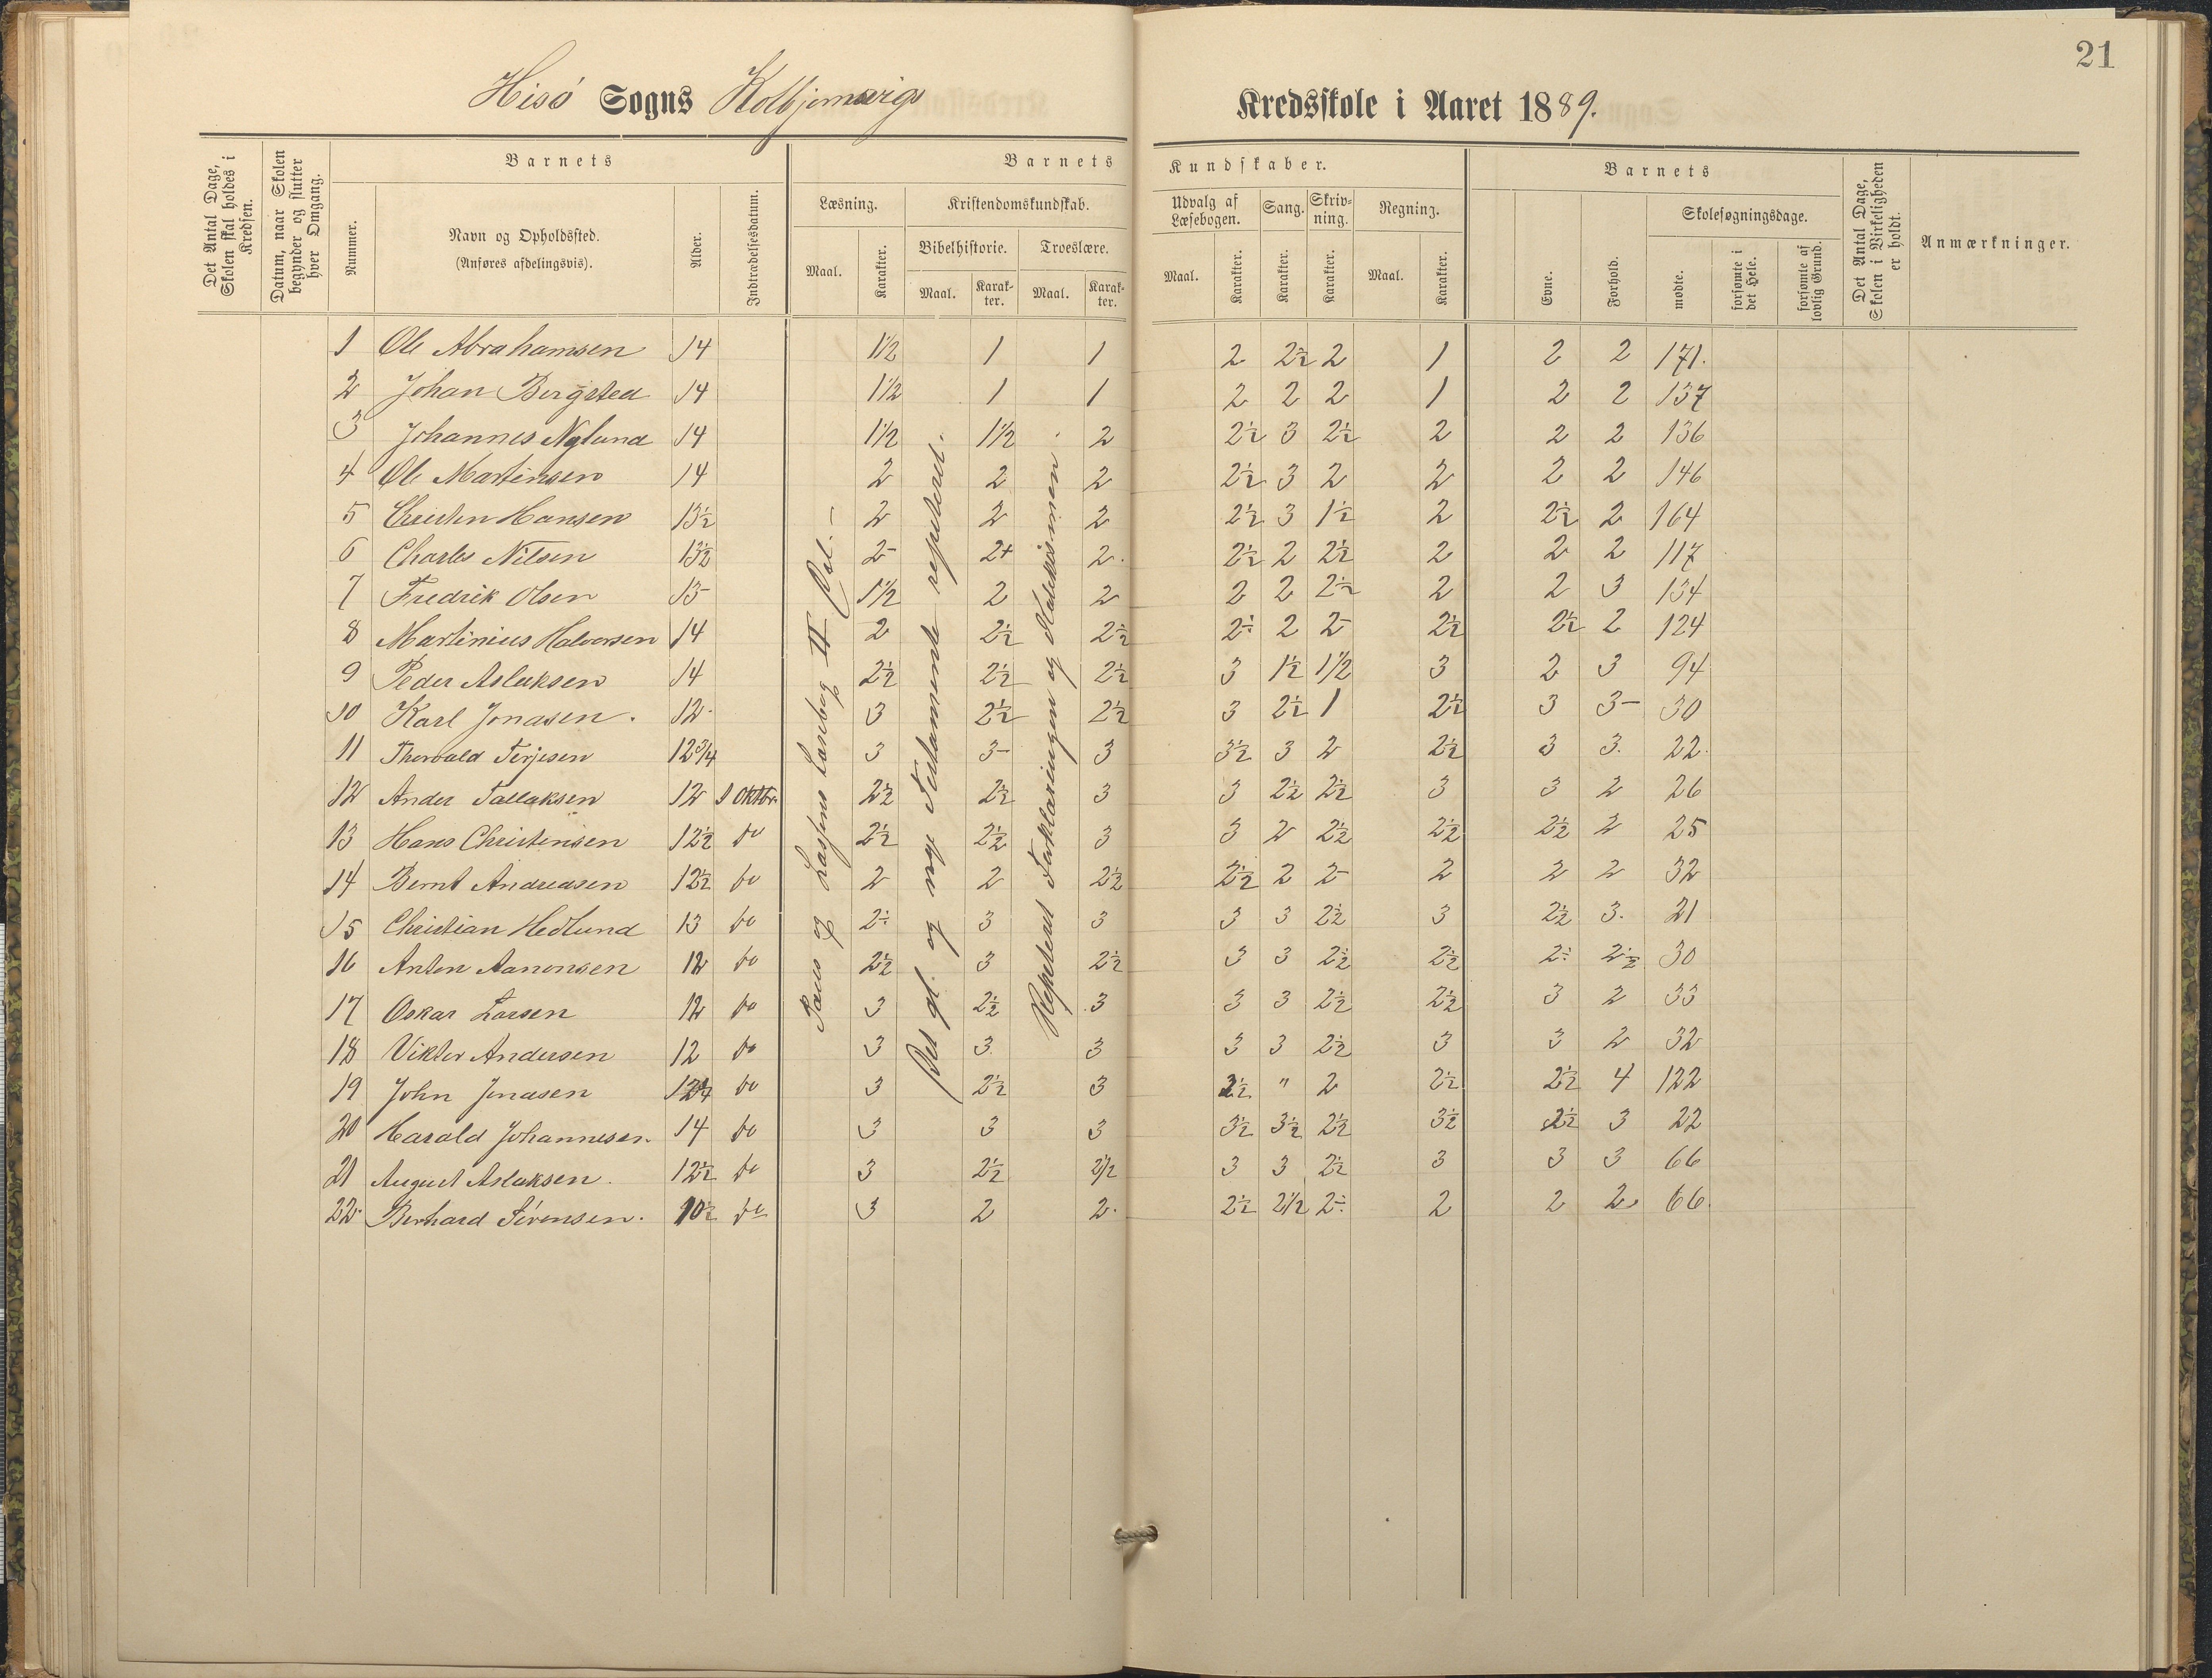 21
Hisö Sogns Kolbjornsvigs Kredsskole i Aaret 1889.
Det Antal Dage, Skolen skal holdes i Kredsen.
Datum, naar Skolen begynder og slutter hver Omgang.
Barnets
Nummer.
Navn og Opholdssted.
(Anføres afdelingsvis).
Alder.
Indtrædelsesdatum.
Barnets Kundskaber.
Læsning.
Maal.
Karakter.
Kristendomskundskab.
Bibelhistorie.
Maal.
Karakter.
Troeslære.
Maal.
Karakter.
Udvalg af Læsebogen.
Maal.
Karakter.
Sang.
Karakter.
Skrivning.
Karakter.
Regning.
Maal.
Karakter.
Barnets
Evne.
Forhold.
Skolesøgningsdage.
mødte.
forsømte i det Hele.
forsømte af lovlig Grund.
Det Antal Dage, Skolen i Virkeligheden er holdt.
Anmærkninger.
Paus og Lassens Læsebog II Del. –
Det gl. og nye Testamente repeteret.
Repeteret Forklaringen og Katekismen.
1 Ole Abrahamsen 14 1½ 1 1 2 2½ 2 1 2 2 171.
2 Johan Bergsted 14 1½ 1 1 2 2 2 1 2 2 137
3 Johannes Nylund 14 1½ 1½ 2 2½ 3 2½ 2 2 2 136
4 Ole Martinsen 14 2 2 2 2½ 3 2 2 2 2 146
5 Christen Hansen 13½ 2 2 2 2½ 3 1½ 2 2½ 2 164
6 Charles Nilsen 13½ 2- 2+ 2. 2½ 2 2½ 2 2 2 117
7 Fredrik Olsen 13- 1½ 2 2 2 2 2½ 2 2 3 134
8 Martinius Halvorsen 14 2 2½ 2½ 2÷ 2 2- 2½ 2½ 2 124
9 Peder Aslaksen 14 2½ 2½ 2½ 3 1½ 1½ 3 2 3 94
10 Karl Jonasen. 12. 3 2½ 2½ 3 2½ 1 2½ 3 3- 30
11 Thorvald Terjesen 12¾ 3 3- 3 3½ 3 2 2½ 3 3. 22.
12 Ander Tallaksen 12 1 Oktbr. 2½ 2½ 3 3 2½ 2½ 3 3 2 26
13 Hans Christensen 12½ do 2½ 2½ 3 3 2 2½ 2½ 2½ 2 25
14 Bernt Andreasen 12½ do 2 2 2½ 2½ 2 2- 2 2 2 32
15 Christian Hedlund 13 do 2÷ 3 3 3 3 2½ 3 2½ 3. 21
16 Anton Aanonsen 12 do 2½ 3 2½ 3 3 2½ 2½ 2÷ 2½ 30
17 Oskar Larsen 12 do 3 2½ 3 3 3 2½ 2½ 3 2 33
18 Viktor Andersen 12 do 3 3. 3 3 3 2½ 3 3 2 32
19 John Jonasen do 3 2½ 3 2½ " 2 2½ 2½ 4 122
20 Harald Johannesen. 14 do 3 3 3 3½ 3½ 2½ 3½ 2½ 3 22
21 August Aslaksen. 12½ do 3 2½ 2½ 3 3 2½ 3 3 3 66
22. Berhard Sörensen. 10½ do 3 2 2. 2½ 2½ 2÷ 2 2 2 66.